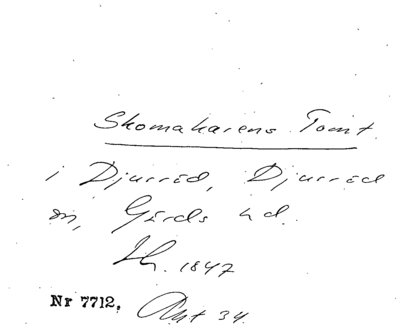 Skomakarens Tomt
i Djurröd, Djurröd
sn, Gärds hd.
Th. 1847
Nr 7712. Ant 34.